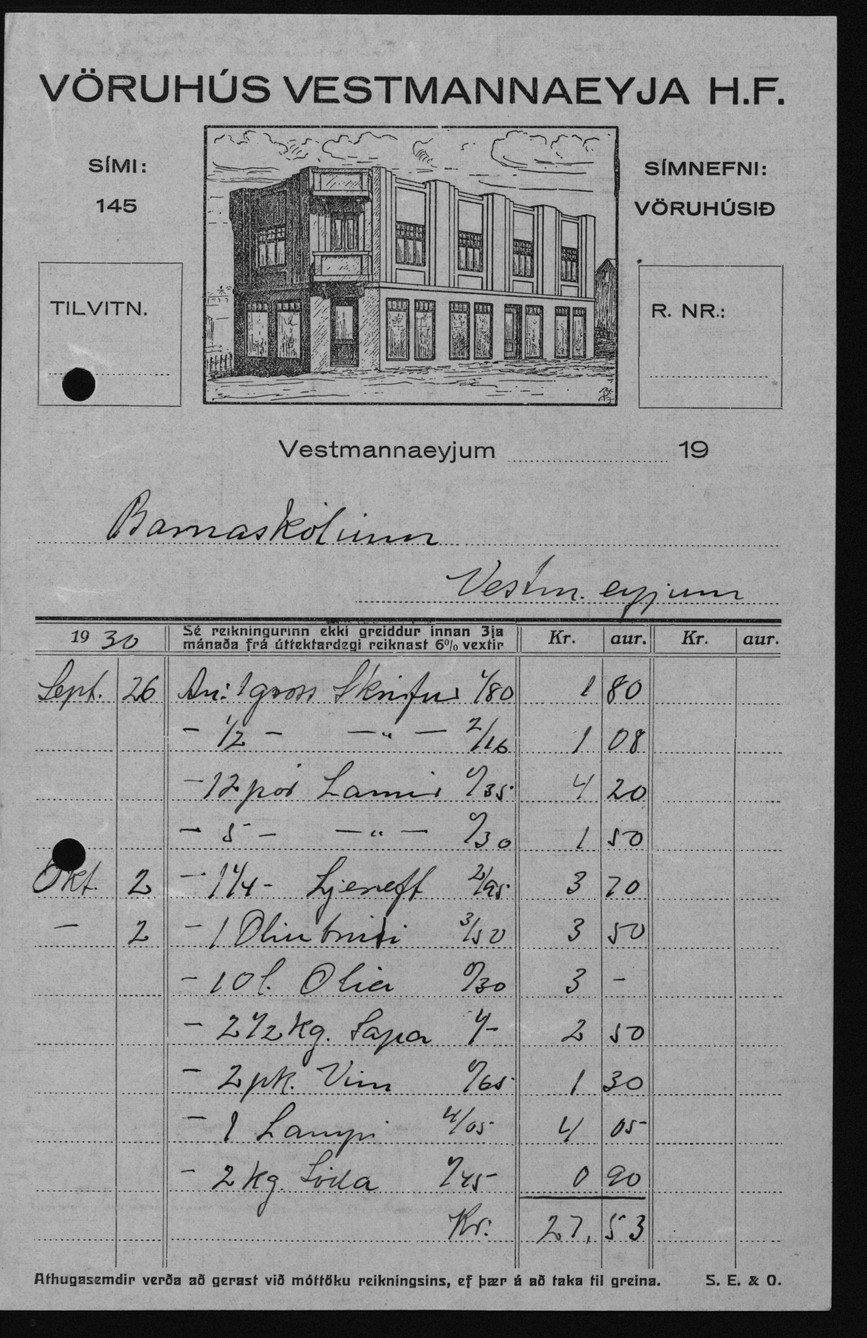 VÖRUHÚS VESTMANNAEYJA H.F.
SÍMI:
145
SÍMNEFNI:
VÖRUHÚSIÐ
TILVITN.
R. NR.:
Vestmannaeyjum 19
Barnaskólinn
Vestm. eyjum
19 30 Sé reikningurinn ekki greiddur innan 3ja mánaða frá úttektardegi reiknast 6% vextir Kr. aur. Kr. aur.
Sept. 26 An: 1 gross Skrúfur 1/80 1 80
- 1/2 - -"- 2/16 1 08
- 12 pör Lamir 0/35 4 20
- 5 - -"- 0/30 1 50
Okt. 2 - 1 1/4 - Ljereft 2/95 3 70
- 2 - 1 Olíubrúsi 3/50 3 50
- 10 l. Olia 0/30 3 -
- 2 1/2 kg. Sápa 1/- 2 50
- 2 pk. Vim 0/65 1 30
- 1 Lampi 4/05 4 05
- 2 kg. Sóda 0/45 0 90
Kr: 27,53
Athugasemdir verða að gerast við móttöku reikningsins, ef þær á að taka til greina. S. E. & O.